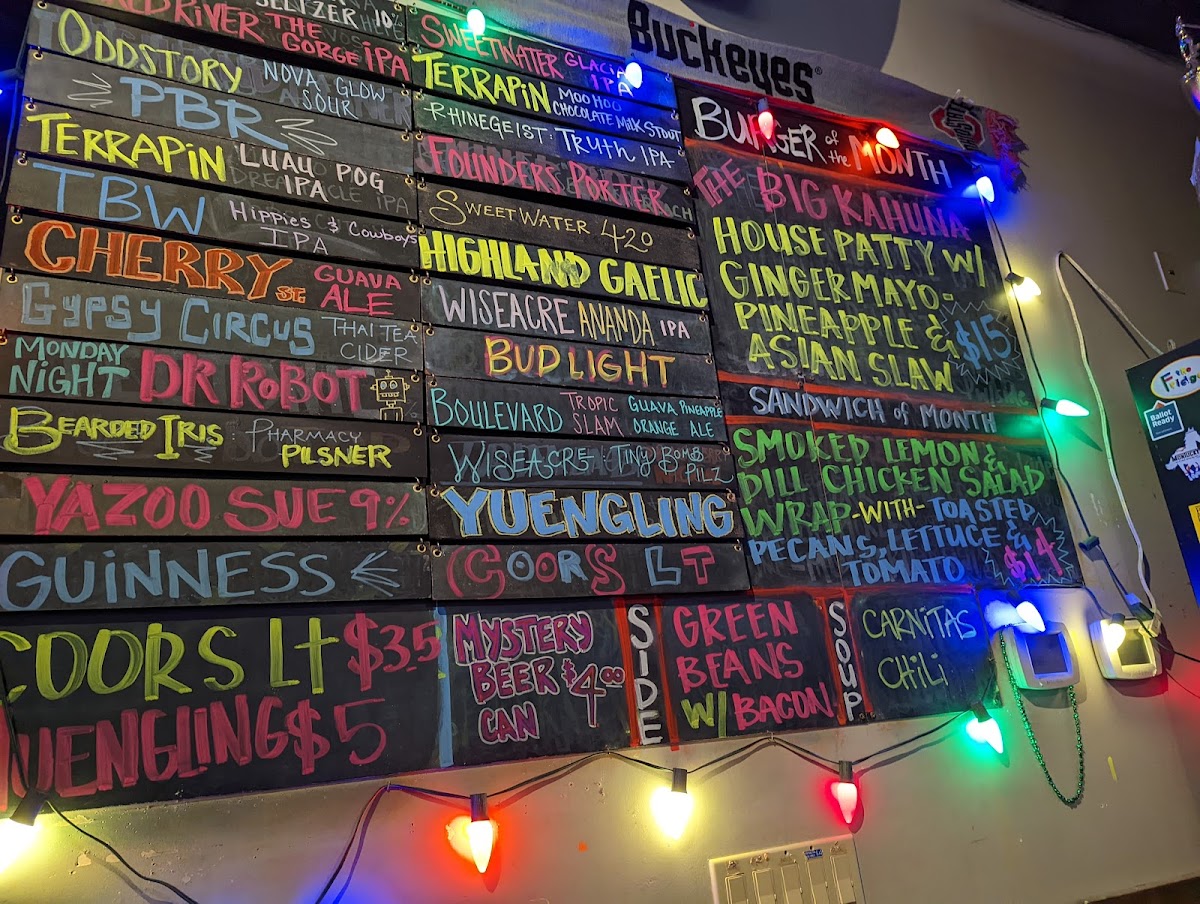 SELTZER 10%
RED RIVER THE
GORGE IPA
ODDSTORY NOVA GLOW
SOUR
PBR
TERRAPIN LUAU POG
IPA
TBW Hippies & Cowboys
IPA
CHERRY ST. GUAVA
ALE
GYPSY CIRCUS THAI TEA
CIDER
MONDAY
NIGHT DR ROBOT
BEARDED IRIS: PHARMACY
PILSNER
YAZOO SUE 9%
GUINNESS
SWEETWATER
IPA
TERRAPIN MOO HOO
CHOCOLATE MILK STOUT
RHINEGEIST: TRUTH IPA
FOUNDERS PORTER
SWEETWATER 420
HIGHLAND GAELIC
WISEACRE ANANDA IPA
BUD LIGHT
BOULEVARD TROPIC
SLAM GUAVA PINEAPPLE
ORANGE ALE
WISEACRE: TINY BOMB
PILZ
YUENGLING
COORS LT
Buckeyes®
BURGER of the MONTH
THE BIG KAHUNA
HOUSE PATTY W/
GINGER MAYO-
PINEAPPLE &
ASIAN SLAW $15
SANDWICH of MONTH
SMOKED LEMON &
DILL CHICKEN SALAD
WRAP -WITH- TOASTED
PECANS, LETTUCE &
TOMATO $14
COORS LT $3.5
YUENGLING $5
MYSTERY
BEER $4.00
CAN
SIDE
GREEN
BEANS
W/ BACON
SOUP
CARNITAS
CHILI
Ballot
Ready